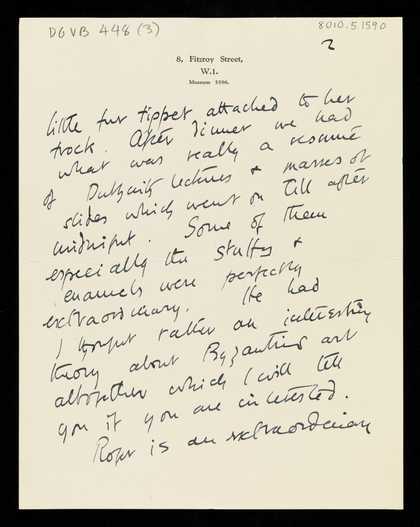 DGVB 448 (3)
8010.5.1590
2
8, Fitzroy Street,
W.1.
Museum
little fur tippet attached to her
frock. After dinner we had
what was really a resumé
of lectures & masses of
slides which went on till after
midnight. Some of them
especially the stuffs &
enamels were perfectly
extraordinary. He had
I thought rather an interesting
theory about Byzantine art
altogether which I will tell
you if you are interested.
Roger is an extraordinary